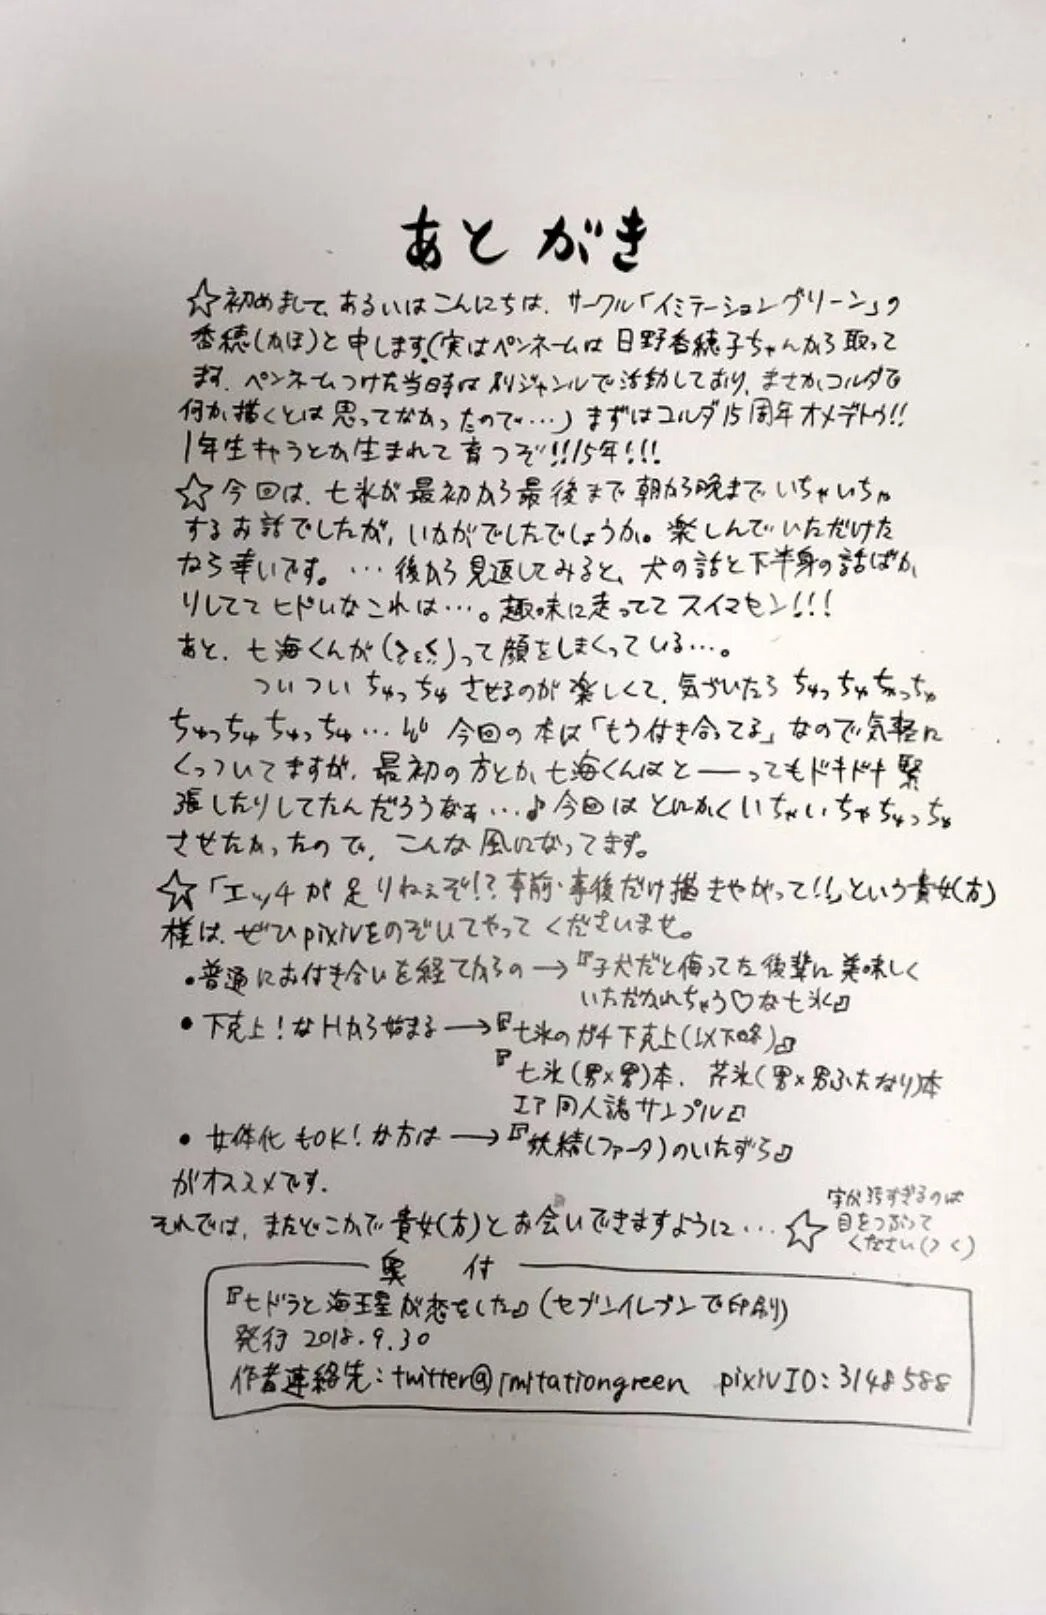 あとがき
☆初めまして、あるいはこんにちは、サークル「イミテーショングリーン」の
香穂(かほ)と申します。(実はペンネームは日野香穂子ちゃんから取って
ます。ペンネームつけた当時は別ジャンルで活動しており、まさかコルダで
何か描くとは思ってなかったので…)まずはコルダ15周年オメデトウ!!
1年生キャラとか生まれて育つぞ!!15年!!!
☆今回は、七氷が最初から最後まで朝から晩までいちゃいちゃ
するお話でしたが、いかがでしたでしょうか。楽しんでいただけた
なら幸いです。…後から見返してみると、犬の話と下半身の話ばか
りしててヒドいなこれは…。趣味に走っててスイマセン!!!
あと、七海くんが(≧ε≦)って顔をしまくっている…。
ついついちゅっちゅさせるのが楽しくて、気づいたらちゅっちゅちゅっちゅ
ちゅっちゅちゅっちゅ… 今回の本は「もう付き合ってる」なので気軽に
くっついてますが、最初の方とか七海くんはと――ってもドキドキ緊
張したりしてたんだろうなぁ…♪今回はとにかくいちゃいちゃちゅっちゅ
させたかったので、こんな風になってます。
☆「エッチが足りねぇぞ!?事前・事後だけ描きやがって!!」という貴女(方)
様は、ぜひpixivをのぞいてやってくださいませ。
•普通にお付き合いを経てからの→『子犬だと侮ってた後輩に美味しく
いただかれちゃう♡な七氷』
•下克上!なHから始まる→『七氷のガチ下克上(以下略)』
『七氷(男×男)本、芹氷(男×男ふたなり)本
エア同人誌サンプル』
•女体化もOK!な方は→『妖精(ファータ)のいたずら』
がオススメです。
それでは、またどこかで貴女(方)とお会いできますように…☆
字が汚すぎるのは
目をつぶって
ください(>く)
奥付
『七ドラと海王星が恋をした』(セブンイレブンで印刷)
発行 2018.9.30
作者連絡先:twitter@imitationgreen pixivID:3148588